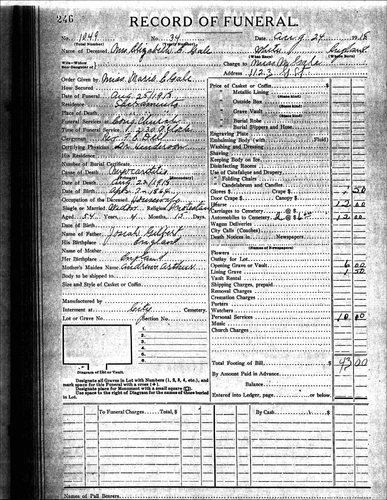 246
RECORD OF FUNERAL
No. 1049 No. 34 Date, Aug 24, 1918
(Total Number) (Yearly Number)
Name of Deceased Mrs. Elizabeth Gale White England
(What Race) (Where Born)
Charge to Miss M Gale
Address 1123 G St
Order Given by Miss Marie E Gale
How Secured
Date of Funeral Aug 25/1918
Residence Sacramento
Place of Death
Funeral Services at Cong Church
Time of Funeral Service 2:30 o'clock
Clergyman
Certifying Physician Dr Henderson
His Residence
Number of Burial Certificate
Cause of Death Myocarditis
(Primary) (Secondary)
Date of Death Aug 23/1918
Date of Birth Apr 1864
Occupation of the Deceased Housewife
Single or Married Widow Religion Protestant
Aged 54 Years, 4 Months, 15 Days
Date of Birth
Name of Father, Josiah Gilbert
His Birthplace England
Name of Mother
Her Birthplace England
Mother's Maiden Name Andrew Arthur
Body to be shipped to
Size and Style of Casket or Coffin
Manufactured by
Interment at City Cemetery.
Lot or Grave No. Section No.
1.
2.
3.
4.
5.
6.
Diagram of Lot or Vault.
Designate all Graves in Lot with Numbers (1, 2, 3, 4, etc.), and
mark space for this Funeral with a cross (+).
Designate place for Monument with a small square (□).
Use space to the right of Diagram for names of those buried
in Lot.
Price of Casket or Coffin $
Metallic Lining
Outside Box
Grave Vault
Burial Robe
Burial Slippers and Hose
Engraving Plate
Embalming Body (with Fluid)
Washing and Dressing
Shaving
Keeping Body on Ice
Disinfecting Rooms
Use of Catafalque and Drapery
" Folding Chairs
" Candelabrum and Candles
Gloves $ Crape $ 50
Door Crape $ Canopy $
Hearse 12 00
Carriages to Cemetery @ $
Automobiles to Cemetery 2 @ $6.00 12 00
Wagon Deliveries
City Calls (Coaches)
Death Notices in Newspapers
Flowers
Outlay for Lot
Opening Grave or Vault 6 00
Lining Grave 1 50
Vault Rental
Shipping Charges, prepaid
Removal Charges
Cremation Charges
Porters
Watchers
Personal Services 10 00
Music
Church Charges
Total Footing of Bill $ 43 00
By Amount Paid in Advance
Balance
Entered into Ledger, page or below.
To Funeral Charges Total, $ By Cash $
Names of Pall Bearers